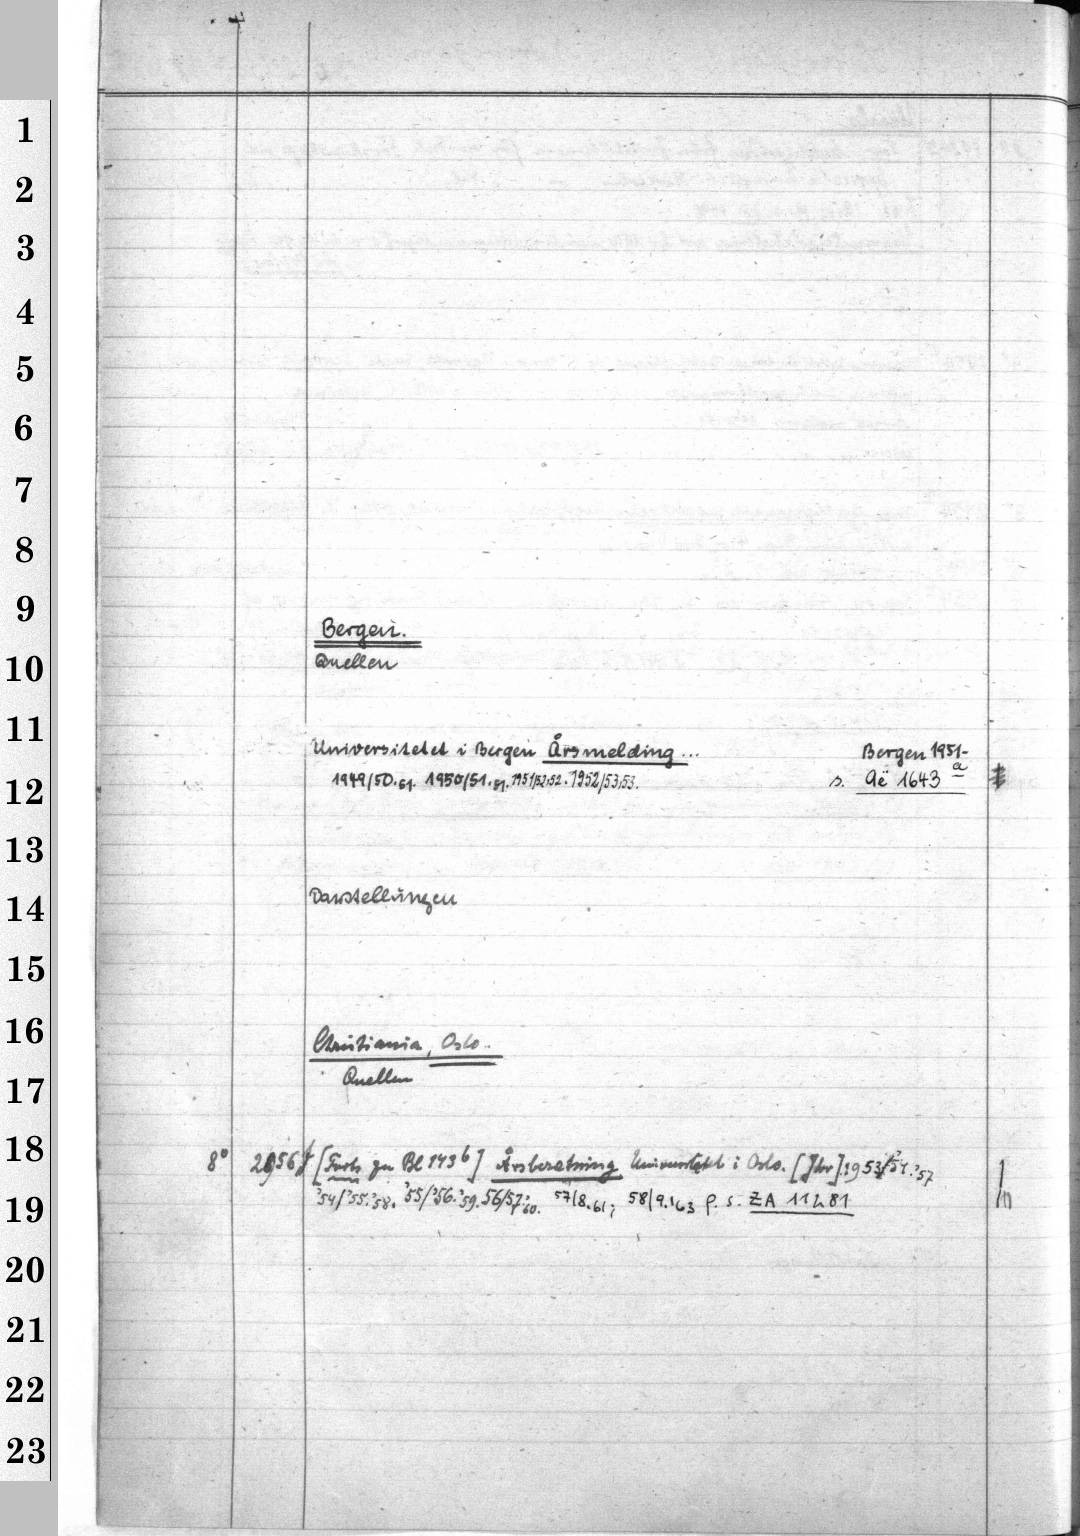 1
2
3
4
5
6
7
8
9
Bergen.
10
Quellen
11
Universitetet i Bergen Årsmelding ... Bergen 1951-
12
1949/50.51. 1950/51.51. 1951/52.52. 1952/53.53. s. Aë 1643 a
13
14
Darstellungen
15
16
Christiania, Oslo.
17
Quellen
18
8° [Forts zu Bl 143 b] Årsberetning Universitetet i Oslo. [Jbr]. 1953/54.'57
19
'54/'55.'58. '55/'56.'59. 56/57.'60. 57/8.61; 58/9.'63 s. ZA 11281
20
21
22
23